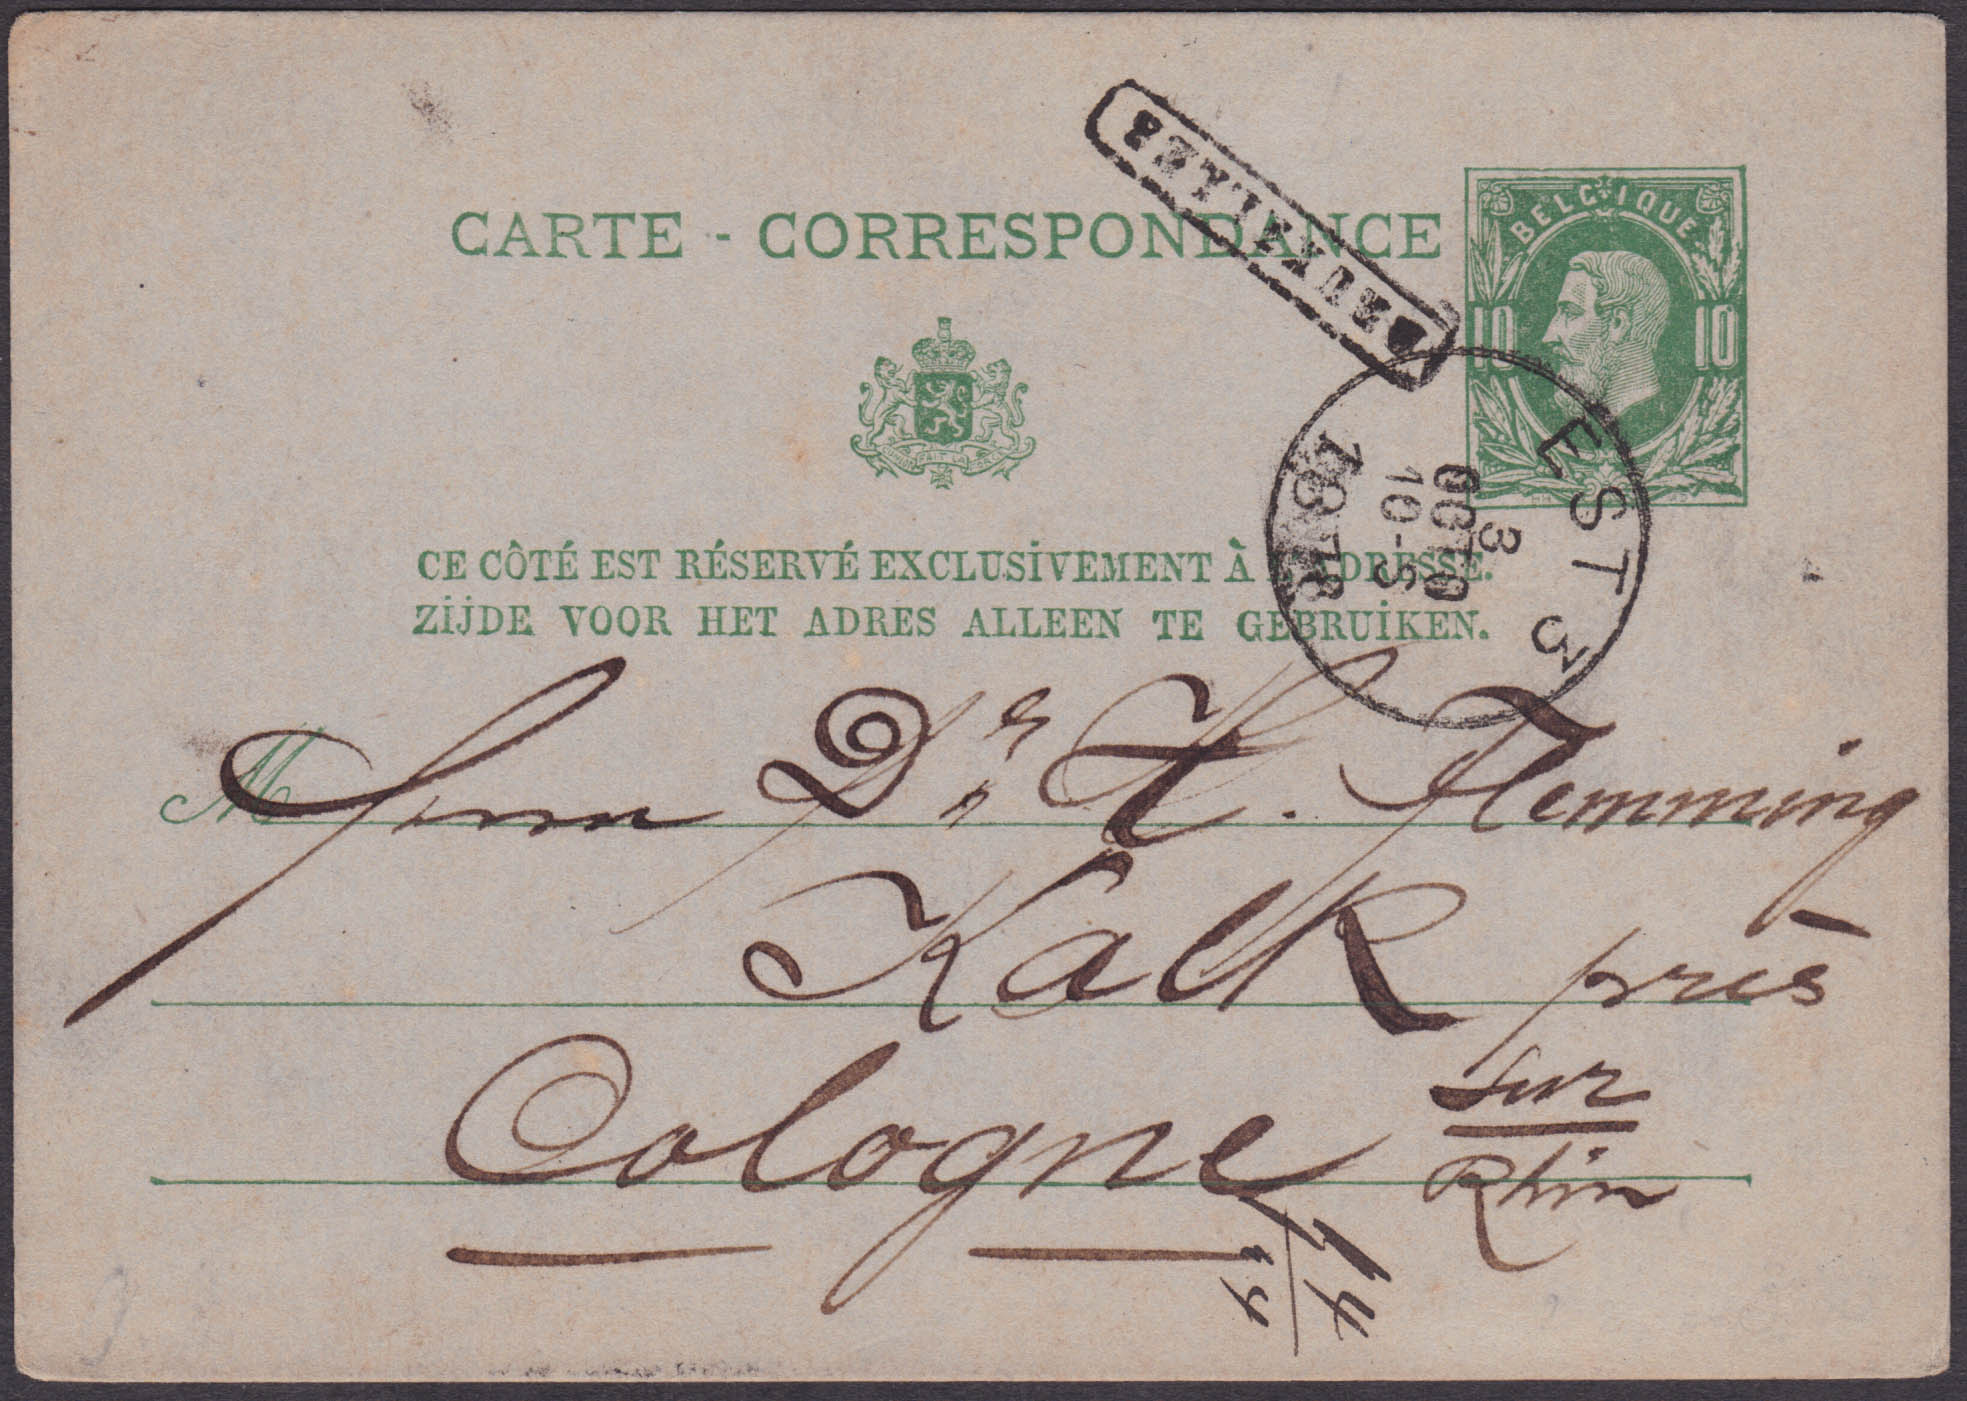 BRUXELLES
BELGIQUE
10 10
CARTE - CORRESPONDANCE
EST 3
3
OCTO
10-S
1878
UNION FAIT LA FORCE
CE CÔTÉ EST RÉSERVÉ EXCLUSİVEMENT À L'ADRESSE.
ZİJDE VOOR HET ADRES ALLEEN TE GEBRUİKEN.
M Herrn Dr. H. Flemming
Kalk près
Cologne sur
Rhin